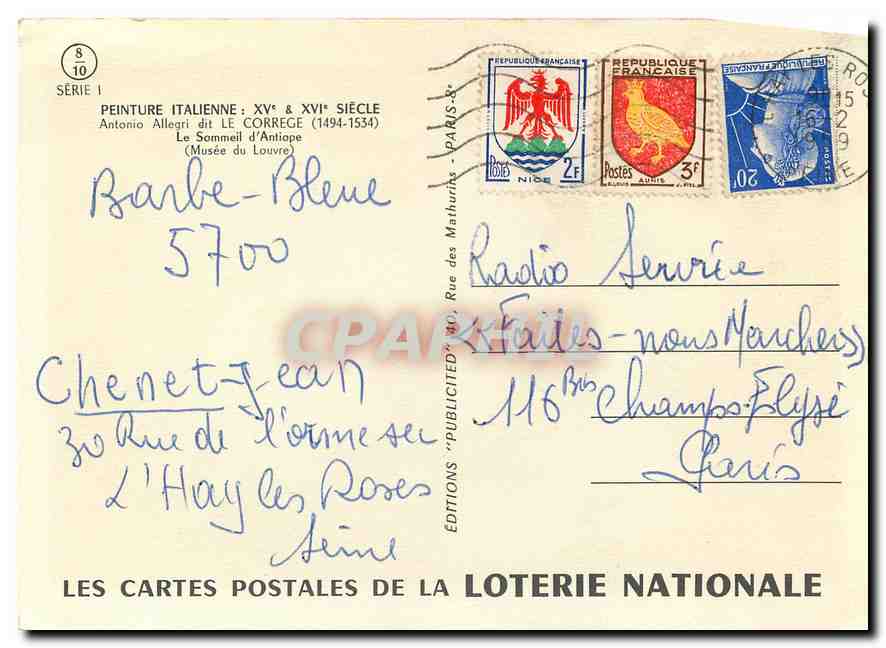 8
10
SÉRIE I
PEINTURE ITALIENNE : XVe & XVIe SIÈCLE
Antonio Allegri dit LE CORREGE (1494-1534)
Le Sommeil d'Antiope
(Musée du Louvre)
Barbe-Bleue
5700
Chenet-Jean
30 Rue de l'orme sec
L'Hay les Roses
Seine
EDITIONS "PUBLICITED" 40, Rue des Mathurins - PARIS-8e
REPUBLIQUE FRANÇAISE
Postes 2F
NICE
REPUBLIQUE
FRANÇAISE
Postes 3F
AUNIS
REPUBLIQUE FRANÇAISE
20F
15
16-2
Radio Service
"Faites-nous Marcher"
116 Bis Champs-Elysé
Paris
CPAPHIL
LES CARTES POSTALES DE LA LOTERIE NATIONALE